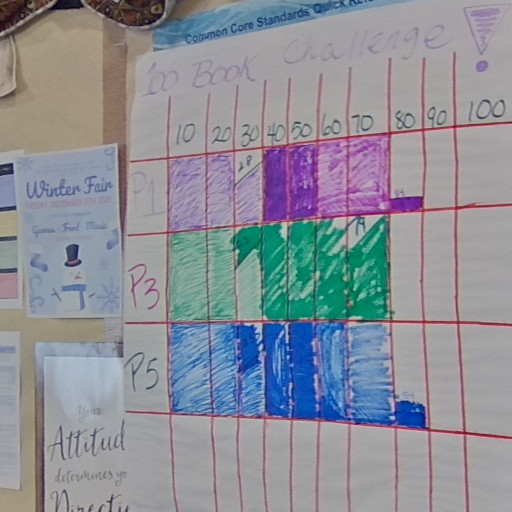 Common Core Standards Quick
100 Book Challenge!
10 20 30 40 50 60 70 80 90 100
P1
28
P3
P5
Winter Fair
Games - Food - Music
Your
Attitud
determines yo
Directi